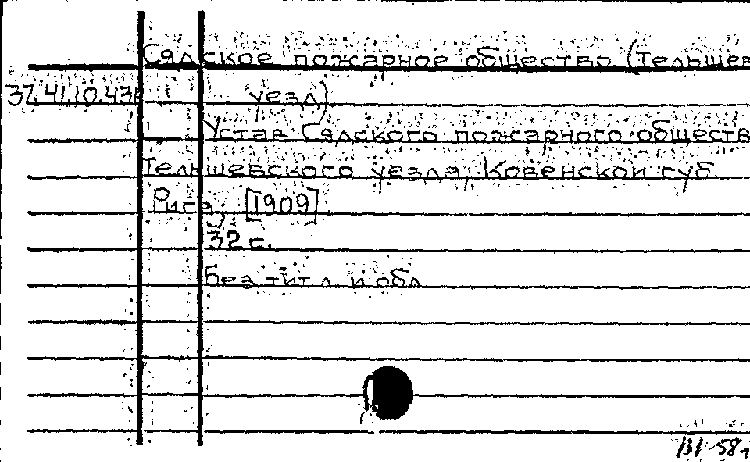 Сядское пожарное общество (Тельшев
37.41.10.43
уезд)
Устав Сядского пожарного обществ
Тельшевского уезда, Ковенской губ.
Рига, [1909]
32 с.
Без тит. л. и обл.